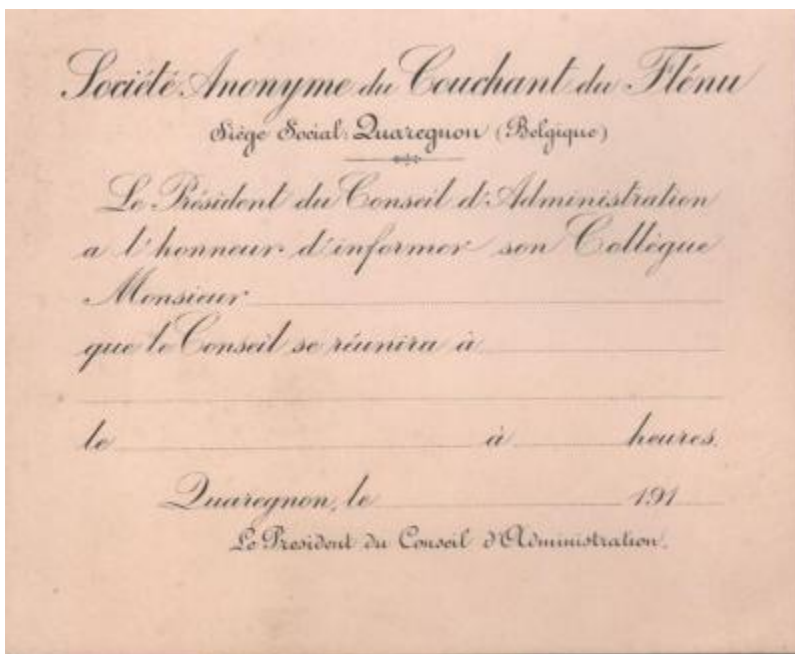 Société Anonyme du Couchant du Flénu
Siège Social: Quaregnon (Belgique)
Le Président du Conseil d'Administration
a l'honneur d'informer son Collègue
Monsieur
que le Conseil se réunira à
le à heures.
Quaregnon, le 191
Le Président du Conseil d'Administration.